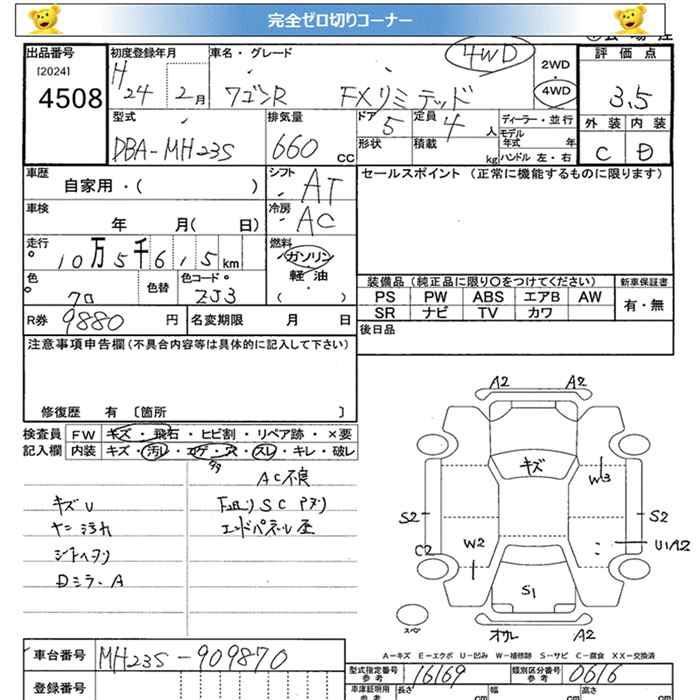 完全ゼロ切りコーナー
出品番号 初度登録年月 車名・グレード 4WD 2WD 評価点
[2024] H
4508 24 2月 ワゴンR FXリミテッド 4WD 3.5
型式 排気量 ドア 定員 ディーラー・並行 外装 内装
DBA-MH23S 660 CC 5 4 人 モデル年式 年 C D
形状 積載 kg ハンドル 左・右
車歴 シフト セールスポイント (正常に機能するものに限ります)
自家用・( ) AT
車検 冷房
年 月( 日) AC
走行 燃料
10万5千6 1 5 km ガソリン
色 色替 色コード 軽油
クロ ZJ3 ( )
装備品(純正品に限り○をつけてください) 新車保証書
PS PW ABS エアB AW 有・無
SR ナビ TV カワ
R券 9880 円 名変期限 月 日 後日品
注意事項申告欄(不具合内容等は具体的に記入して下さい)
修復歴 有 〔箇所 〕
検査員 FW キズ・飛石・ヒビ割・リペア跡・×要
記入欄 内装 キズ・汚レ・コゲ・穴・スレ・キレ・破レ
AC不良
キズU
ヤニ汚れ
シートヘタリ
Dミラー A
A2 A2
キズ
W3
S2 S2
C2 W2 U1A2
S1
スペア
オサレ A2
A-キズ E-エクボ U-凹み W-補修跡 S-サビ C-腐食 XX-交換済
車台番号 MH23S-909870
型式指定番号 参考 16169 類別区分番号 参考 0616
登録番号 車庫証明用 参考 長さ cm 幅 cm 高さ cm